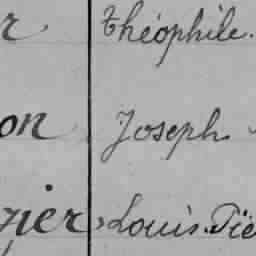 r théophile.
on Joseph
zier, Louis. Pie